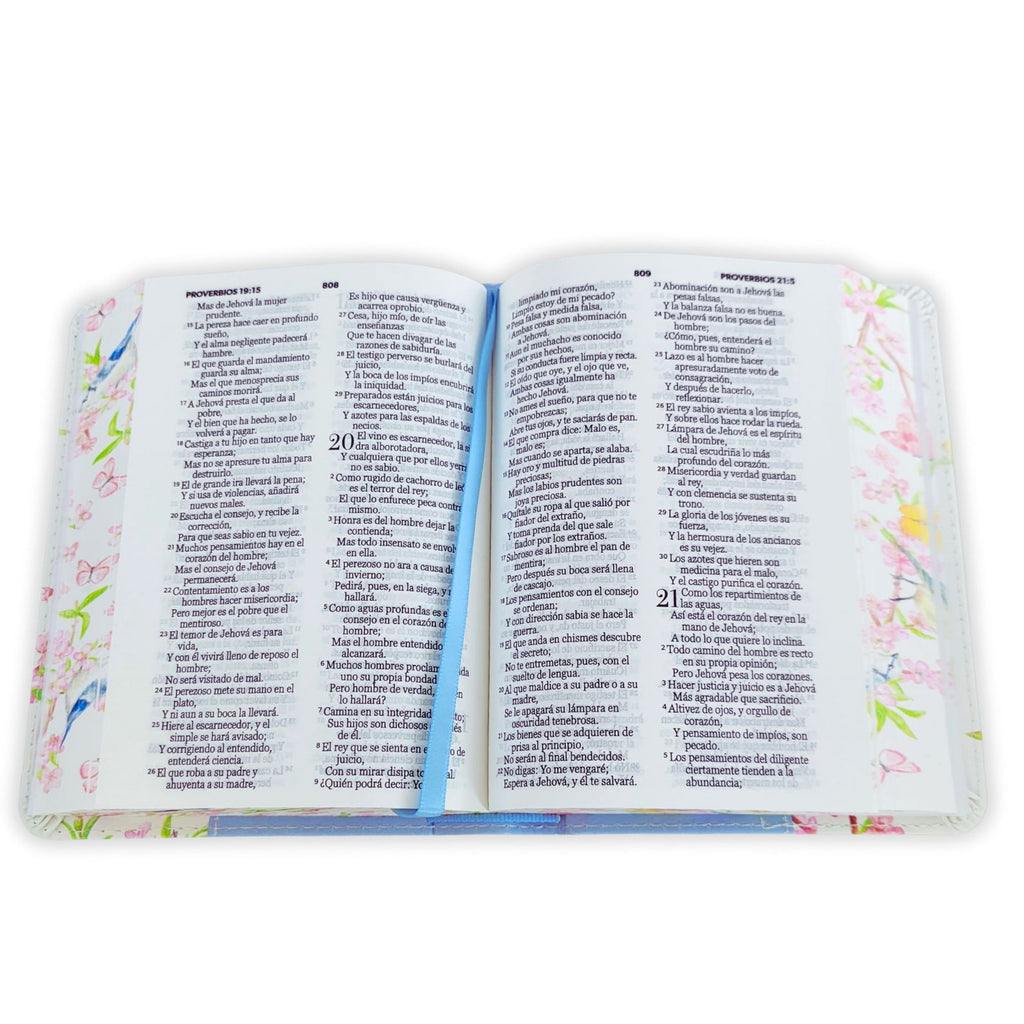 PROVERBIOS 19:15
808
Mas de Jehová la mujer
prudente.
15 La pereza hace caer en profundo
sueño,
Y el alma negligente padecerá
hambre.
16 El que guarda el mandamiento
guarda su alma;
Mas el que menosprecia sus
caminos morirá.
17 A Jehová presta el que da al
pobre,
Y el bien que ha hecho, se lo
volverá a pagar.
18 Castiga a tu hijo en tanto que hay
esperanza;
Mas no se apresure tu alma para
destruirlo.
19 El de grande ira llevará la pena;
Y si usa de violencias, añadirá
nuevos males.
20 Escucha el consejo, y recibe la
corrección,
Para que seas sabio en tu vejez.
21 Muchos pensamientos hay en el
corazón del hombre;
Mas el consejo de Jehová
permanecerá.
22 Contentamiento es a los
hombres hacer misericordia;
Pero mejor es el pobre que el
mentiroso.
23 El temor de Jehová es para
vida,
Y con él vivirá lleno de reposo el
hombre;
No será visitado de mal.
24 El perezoso mete su mano en el
plato,
Y ni aun a su boca la llevará.
25 Hiere al escarnecedor, y el
simple se hará avisado;
Y corrigiendo al entendido,
entenderá ciencia.
26 El que roba a su padre y
ahuyenta a su madre,
Es hijo que causa vergüenza y
acarrea oprobio.
27 Cesa, hijo mío, de oír las
enseñanzas
Que te hacen divagar de las
razones de sabiduría.
28 El testigo perverso se burlará del
juicio,
Y la boca de los impíos encubrirá
la iniquidad.
29 Preparados están juicios para los
escarnecedores,
Y azotes para las espaldas de los
necios.
20 El vino es escarnecedor, la
dra alborotadora,
Y cualquiera que por ellos
no es sabio.
2 Como rugido de cachorro de
es el terror del rey;
El que lo enfurece peca
mismo.
3 Honra es del hombre dejar la
contienda;
Mas todo insensato se
en ella.
4 El perezoso no ara a causa de
invierno;
Pedirá, pues, en la siega, y
hallará.
5 Como aguas profundas es
consejo en el corazón de
hombre;
Mas el hombre entendido
alcanzará.
6 Muchos hombres
uno su propia bondad
Pero hombre de verdad,
lo hallará?
7 Camina en su integridad
Sus hijos son dichosos
de él.
8 El rey que se sienta en de
juicio,
Con su mirar disipa
9 ¿Quién podrá decir: Yo
809
PROVERBIOS 21:5
limpiado mi corazón,
Limpio estoy de mi pecado?
10 Pesa falsa y medida falsa,
Ambas cosas son abominación
a Jehová.
11 Aun el muchacho es conocido
por sus hechos,
Si su conducta fuere limpia y recta.
12 El oído que oye, y el ojo que ve,
Ambas cosas igualmente ha
hecho Jehová.
13 No ames el sueño, para que no te
empobrezcas;
Abre tus ojos, y te saciarás de pan.
14 El que compra dice: Malo es,
malo es;
Mas cuando se aparta, se alaba.
15 Hay oro y multitud de piedras
preciosas;
Mas los labios prudentes son
joya preciosa.
16 Quítale su ropa al que salió por
fiador del extraño,
Y toma prenda del que sale
fiador por los extraños.
17 Sabroso es al hombre el pan de
mentira;
Pero después su boca será llena
de cascajo.
18 Los pensamientos con el consejo
se ordenan;
Y con dirección sabia se hace la
guerra.
19 El que anda en chismes descubre
el secreto;
No te entremetas, pues, con el
suelto de lengua.
20 Al que maldice a su padre o a su
madre,
Se le apagará su lámpara en
oscuridad tenebrosa.
21 Los bienes que se adquieren de
prisa al principio,
No serán al final bendecidos.
22 No digas: Yo me vengaré;
Espera a Jehová, y él te salvará.
23 Abominación son a Jehová las
pesas falsas,
Y la balanza falsa no es buena.
24 De Jehová son los pasos del
hombre;
¿Cómo, pues, entenderá el
hombre su camino?
25 Lazo es al hombre hacer
apresuradamente voto de
consagración,
Y después de hacerlo,
reflexionar.
26 El rey sabio avienta a los impíos,
Y sobre ellos hace rodar la rueda.
27 Lámpara de Jehová es el espíritu
del hombre,
La cual escudriña lo más
profundo del corazón.
28 Misericordia y verdad guardan
al rey,
Y con clemencia se sustenta su
trono.
29 La gloria de los jóvenes es su
fuerza,
Y la hermosura de los ancianos
es su vejez.
30 Los azotes que hieren son
medicina para el malo,
Y el castigo purifica el corazón.
21 Como los repartimientos de
las aguas,
Así está el corazón del rey en la
mano de Jehová;
A todo lo que quiere lo inclina.
2 Todo camino del hombre es recto
en su propia opinión;
Pero Jehová pesa los corazones.
3 Hacer justicia y juicio es a Jehová
Más agradable que sacrificio.
4 Altivez de ojos, y orgullo de
corazón,
Y pensamiento de impíos, son
pecado.
5 Los pensamientos del diligente
ciertamente tienden a la
abundancia;